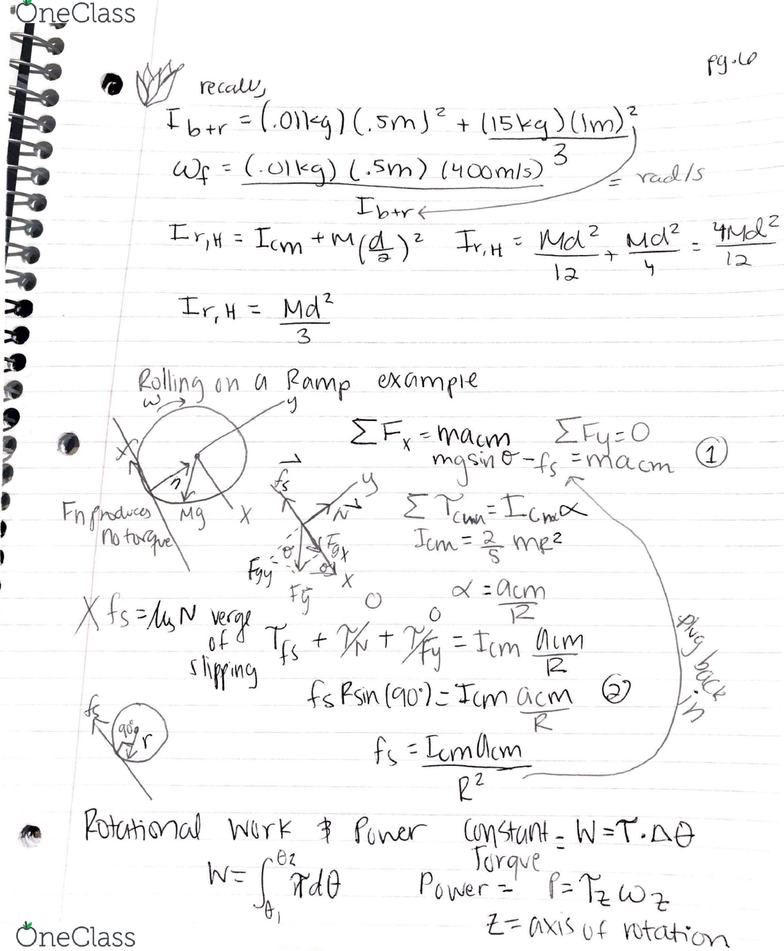 OneClass
pg.6
recall,
I b+r = (.01kg)(.5m)² + (15kg)(1m)² / 3
ωf = (.01kg)(.5m)(400m/s) / I b+r = rad/s
I r,H = Icm + M(d/2)² I r,H = Md²/12 + Md²/4 = 4Md²/12
I r,H = Md²/3
Rolling on a Ramp example
ω
y
x
r
Mg
X
Fn produces
no torque
fs
y
N
Fgx
θ
θ
Fgy
Fg
X
ΣFx = macm ΣFy=0
mgsinθ - fs = macm ①
Στcm = Icm α
Icm = 2/5 mR²
α = acm/R
X fs = μsN verge
of
slipping
0 0
τfs + τN + τFg = Icm acm/R
fs R sin(90°) = Icm acm/R ②
fs = Icm acm / R²
plug back
in
fs
90°
r
Rotational Work & Power Constant = W = τ·Δθ
Torque
W = ∫θ1 θ2 τdθ Power = P = τz ωz
z = axis of rotation
OneClass